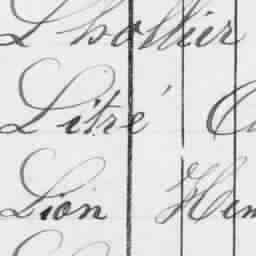 Lhollier
Litré
Lion Hem